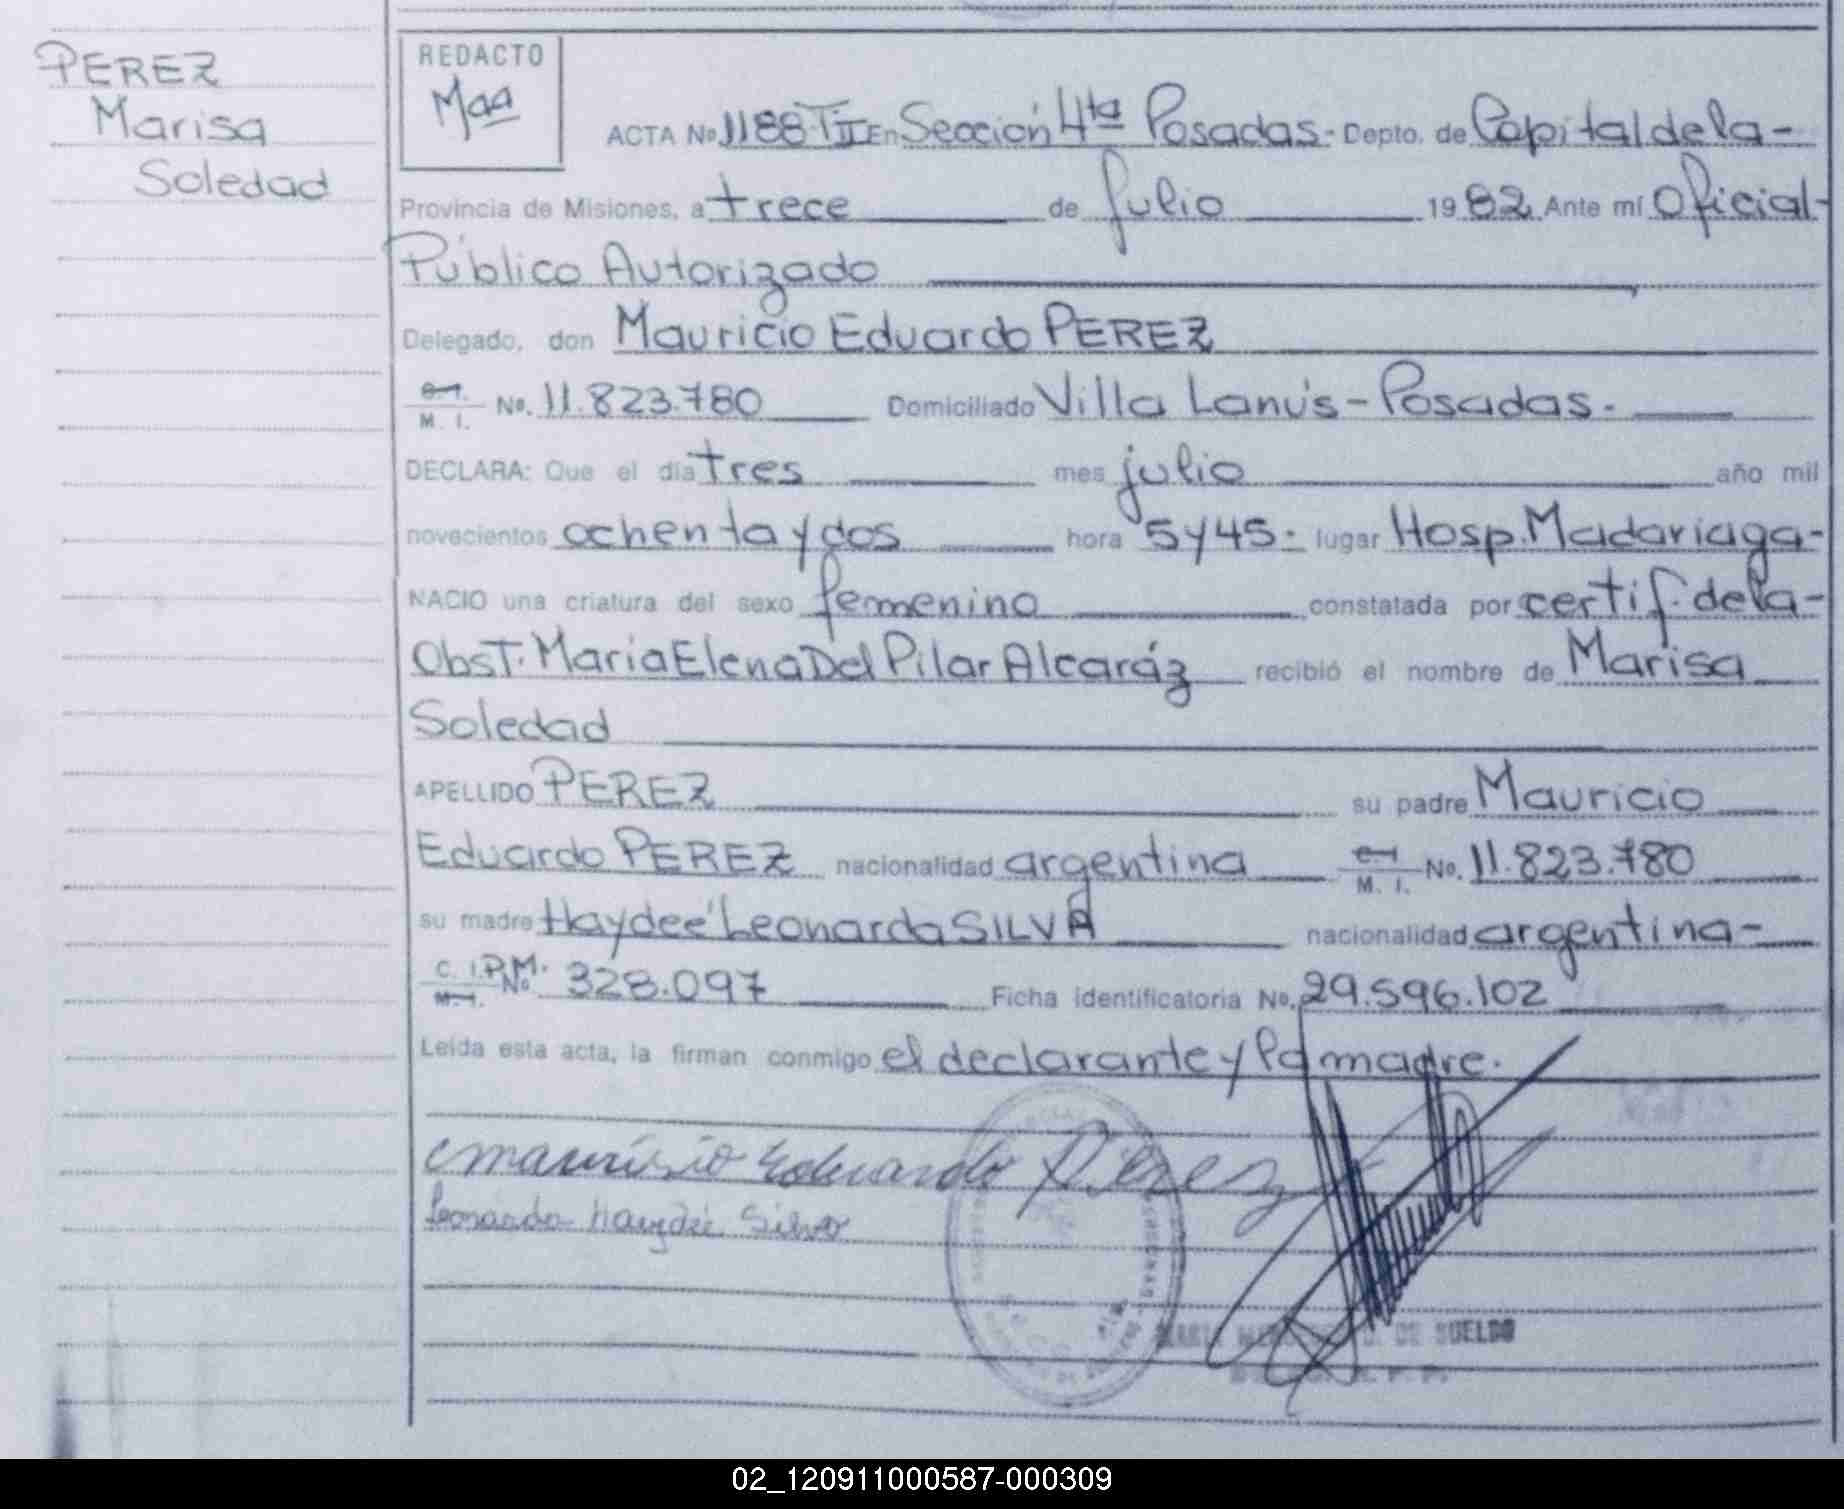 PEREZ
Marisa
Soledad
REDACTO
Maa
ACTA No 1188-TII En Sección 4ta Posadas- Depto. de Capital de la-
Provincia de Misiones, a trece de julio 1982 Ante mí Oficial-
Público Autorizado
Delegado, don Mauricio Eduardo PEREZ
M. I. No. 11.823.780 Domiciliado Villa Lanús-Posadas.
DECLARA: Que el día tres mes julio año mil
novecientos ochenta y dos hora 5 y 45. lugar Hosp. Madariaga-
NACIO una criatura del sexo femenino constatada por certif. de la-
Obst. María Elena Del Pilar Alcaráz recibió el nombre de Marisa
Soledad
APELLIDO PEREZ su padre Mauricio
Eduardo PEREZ nacionalidad argentina M. I. No. 11.823.780
su madre Haydeé Leonarda SILVA nacionalidad argentina-
C. I. P.M. No 328.097 Ficha identificatoria No. 29.596.102
Leída esta acta, la firman conmigo el declarante y la madre.
maurisio Eduardo Perez
Leonarda haydée Silva
DE SUELDO
02_120911000587-000309